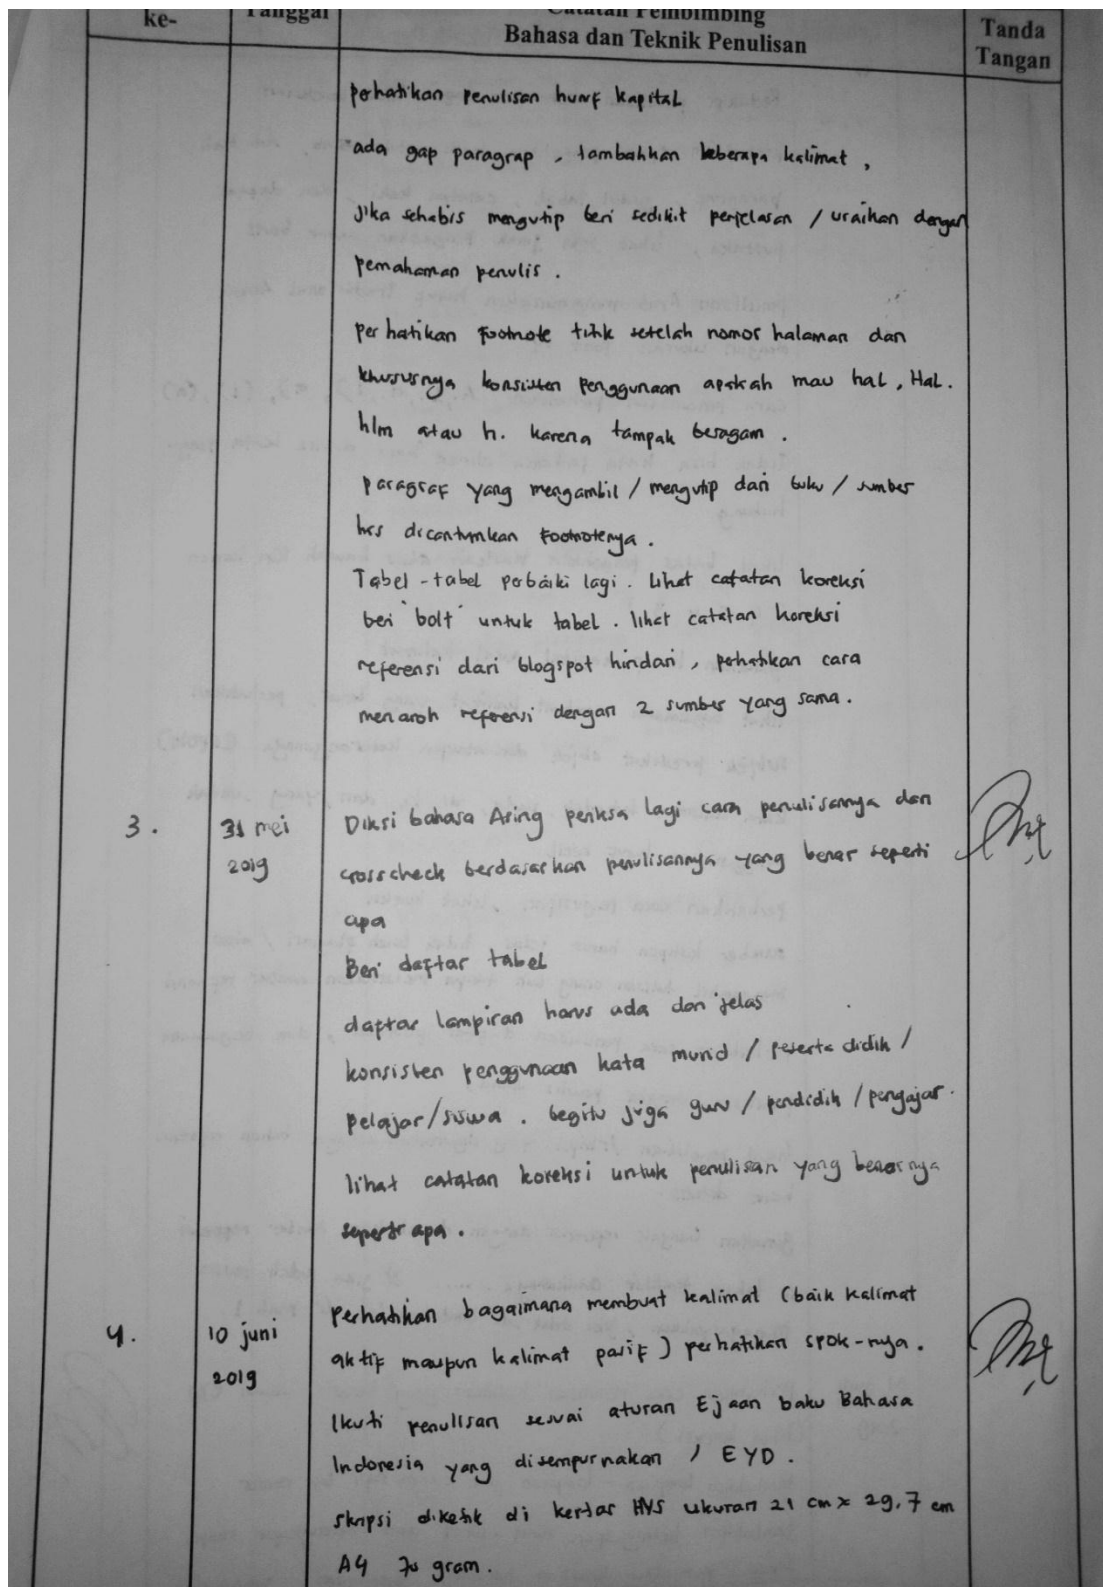 ke-
Tanggal
Catatan Pembimbing
Bahasa dan Teknik Penulisan
Tanda
Tangan
perhatikan penulisan huruf kapital
ada gap paragrap, tambahkan beberapa kalimat,
Jika sehabis mengutip beri sedikit penjelasan / uraikan dengan
pemahaman penulis.
Perhatikan footnote titik setelah nomor halaman dan
khususnya konsisten penggunaan apakah mau hal, Hal.
hlm atau h. karena tampak beragam.
paragraf yang mengambil / mengutip dari buku / sumber
hrs dicantumkan Footnotenya.
Tabel-tabel perbaiki lagi. Lihat catatan koreksi
beri "bolt" untuk tabel. lihat catatan koreksi
referensi dari blogspot hindari, perhatikan cara
menaroh referensi dengan 2 sumber yang sama.
3.
31 mei
2019
Diksi bahasa Asing periksa lagi cara penulisannya dan
crosscheck berdasarkan penulisannya yang benar seperti
apa
Beri daftar tabel
daftar lampiran harus ada dan jelas
konsisten penggunaan kata murid / peserta didik /
pelajar/siswa. begitu juga guru / pendidik / pengajar.
lihat catatan koreksi untuk penulisan yang benarnya
seperti apa.
4.
10 juni
2019
Perhatikan bagaimana membuat kalimat (baik kalimat
aktif maupun kalimat pasif) perhatikan SPOK-nya.
Ikuti penulisan sesuai aturan Ejaan baku Bahasa
Indonesia yang disempurnakan / EYD.
skripsi diketik di kertas HVS ukuran 21 cm x 29,7 cm
A4 70 gram.